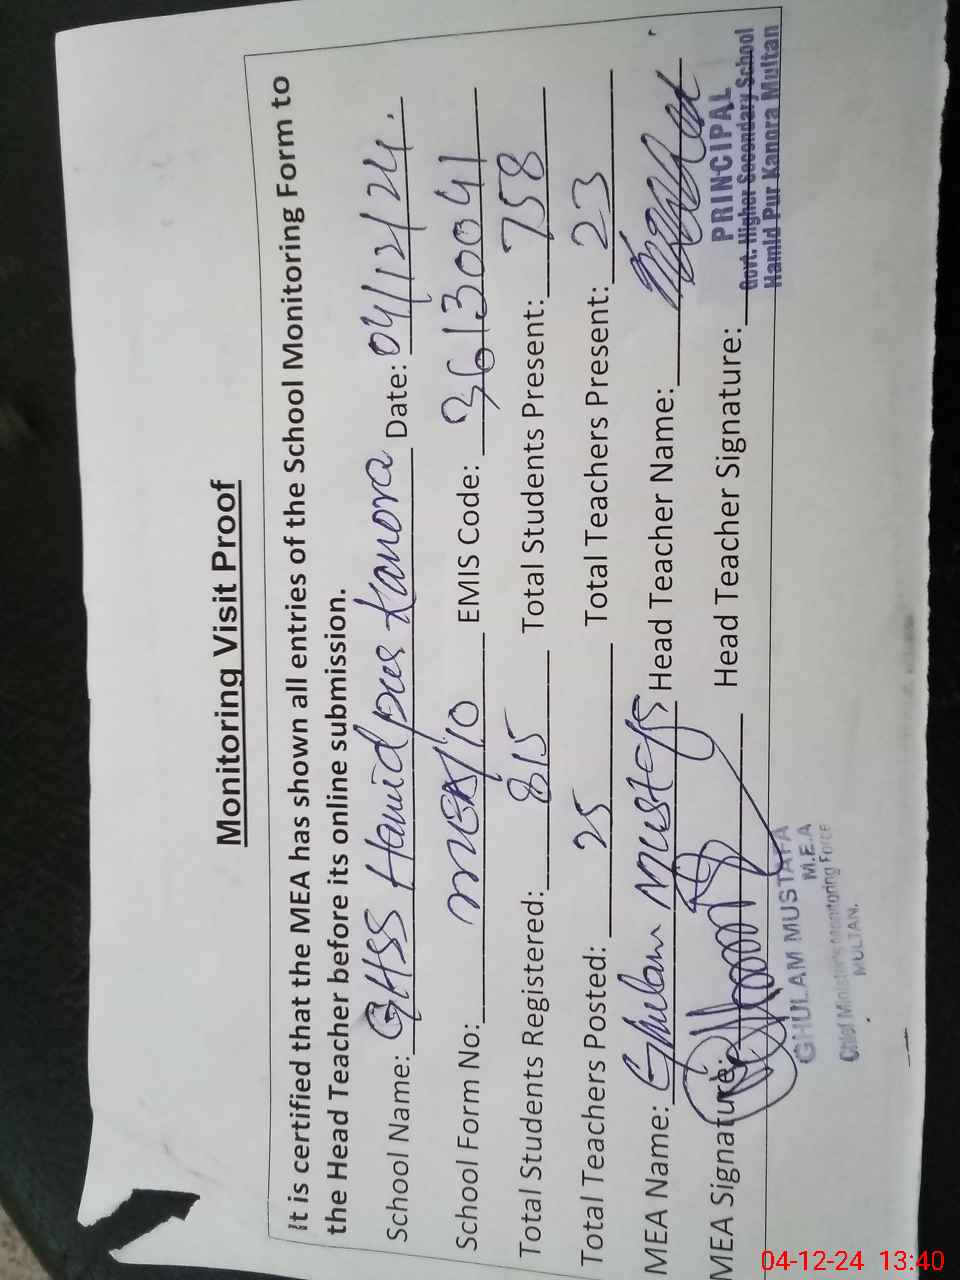 Monitoring Visit Proof
It is certified that the MEA has shown all entries of the School Monitoring Form to
the Head Teacher before its online submission.
School Name: GHSS Hamid pur Kanora Date: 04/12/24.
School Form No: MEA/10 EMIS Code: 36130041
Total Students Registered: 815 Total Students Present: 758
Total Teachers Posted: 25 Total Teachers Present: 23
MEA Name: Ghulam Mustafa Head Teacher Name:
MEA Signature: Head Teacher Signature:
PRINCIPAL
Govt. Higher Secondary School
Hamid Pur Kanora Multan
GHULAM MUSTAFA
M.E.A
Chief Minister's Monitoring Force
MULTAN.
04-12-24 13:40